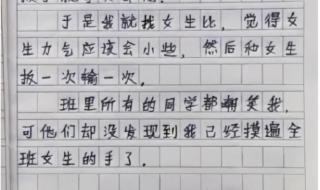 于是我就找女生比，觉得女
生力气应该会小些，然后和女生
扳一次输一次。
班里所有的同学都嘲笑我，
可他们却没发现到我已经摸遍全
班女生的手了。